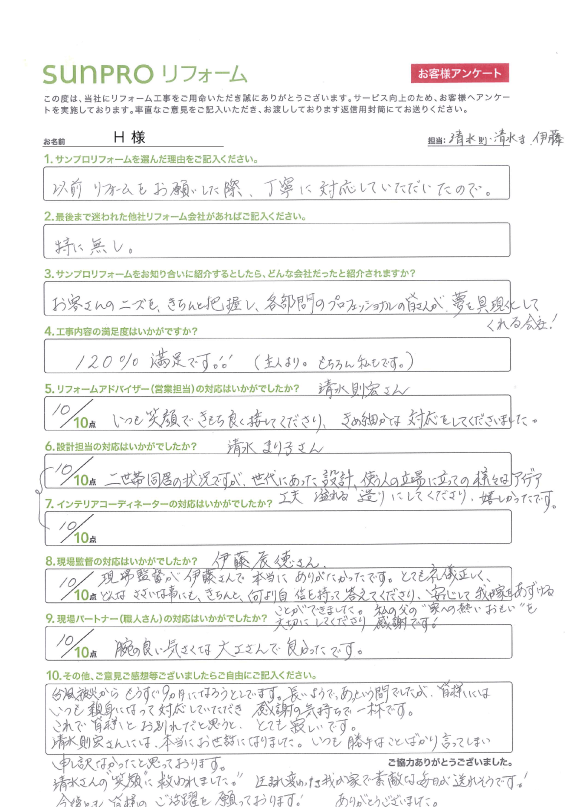 SUNPRO リフォーム
お客様アンケート
この度は、当社にリフォーム工事をご用命いただき誠にありがとうございます。サービス向上のため、お客様へアンケー
トを実施しております。率直なご意見をご記入いただき、お渡ししております返信用封筒にてお送りください。
お名前 H 様 担当: 清水則・清水ま・伊藤
1. サンプロリフォームを選んだ理由をご記入ください。
以前 リフォームをお願いした際、丁寧に対応していただいたので。
2. 最後まで迷われた他社リフォーム会社があればご記入ください。
特に無し。
3. サンプロリフォームをお知り合いに紹介するとしたら、どんな会社だったと紹介されますか?
お客さんのニーズを、きちんと把握し、各部門のプロフェッショナルの皆さんが 夢を具現化して
くれる会社!
4. 工事内容の満足度はいかがですか?
120% 満足です!! (主人より。もちろん私もです。)
5. リフォームアドバイザー(営業担当)の対応はいかがでしたか? 清水則宏さん
10/10点 いつも笑顔できもち良く接してくださり、きめ細かな 対応をしてくださいました。
6. 設計担当の対応はいかがでしたか? 清水 まり子さん
10/10点 二世帯同居の状況ですが、世代にあった設計、使う人の立場に立っての 様々なアイデア
7. インテリアコーディネーターの対応はいかがでしたか? 工夫 溢れる 造りにしてくださり、嬉しかったです。
10/10点
8. 現場監督の対応はいかがでしたか? 伊藤辰徳さん
10/10点 現場監督が伊藤さんで本当に ありがたかったです。とても礼儀正しく、
どんな ささいな事にも、きちんと、何より自信を持って答えてくださり、安心して我が家をあずける
ことができました。私の父の"家への熱いおもい"を
9. 現場パートナー(職人さん)の対応はいかがでしたか? 大切にしてくださり 感謝です!
10/10点 腕の良い気さくな大工さんで良かったです。
10. その他、ご意見ご感想等ございましたらご自由にご記入ください。
台風被災から もうすぐ9カ月になろうとしています。長いようで、あっという間でしたが、皆様には
いつも親身になって対応していただき 感謝の気持ちで一杯です。
これで皆様とお別れだと思うと、とても寂しいです。
清水則宏さんには、本当にお世話になりました。いつも勝手なことばかり言ってしまい
申し訳なかったと思っております。
ご協力ありがとうございました。
清水さんの"笑顔"に救われました。 生まれ変わった我が家で素敵な毎日が送れそうです!
今後とも 皆様の ご活躍を願っております。 ありがとうございました。